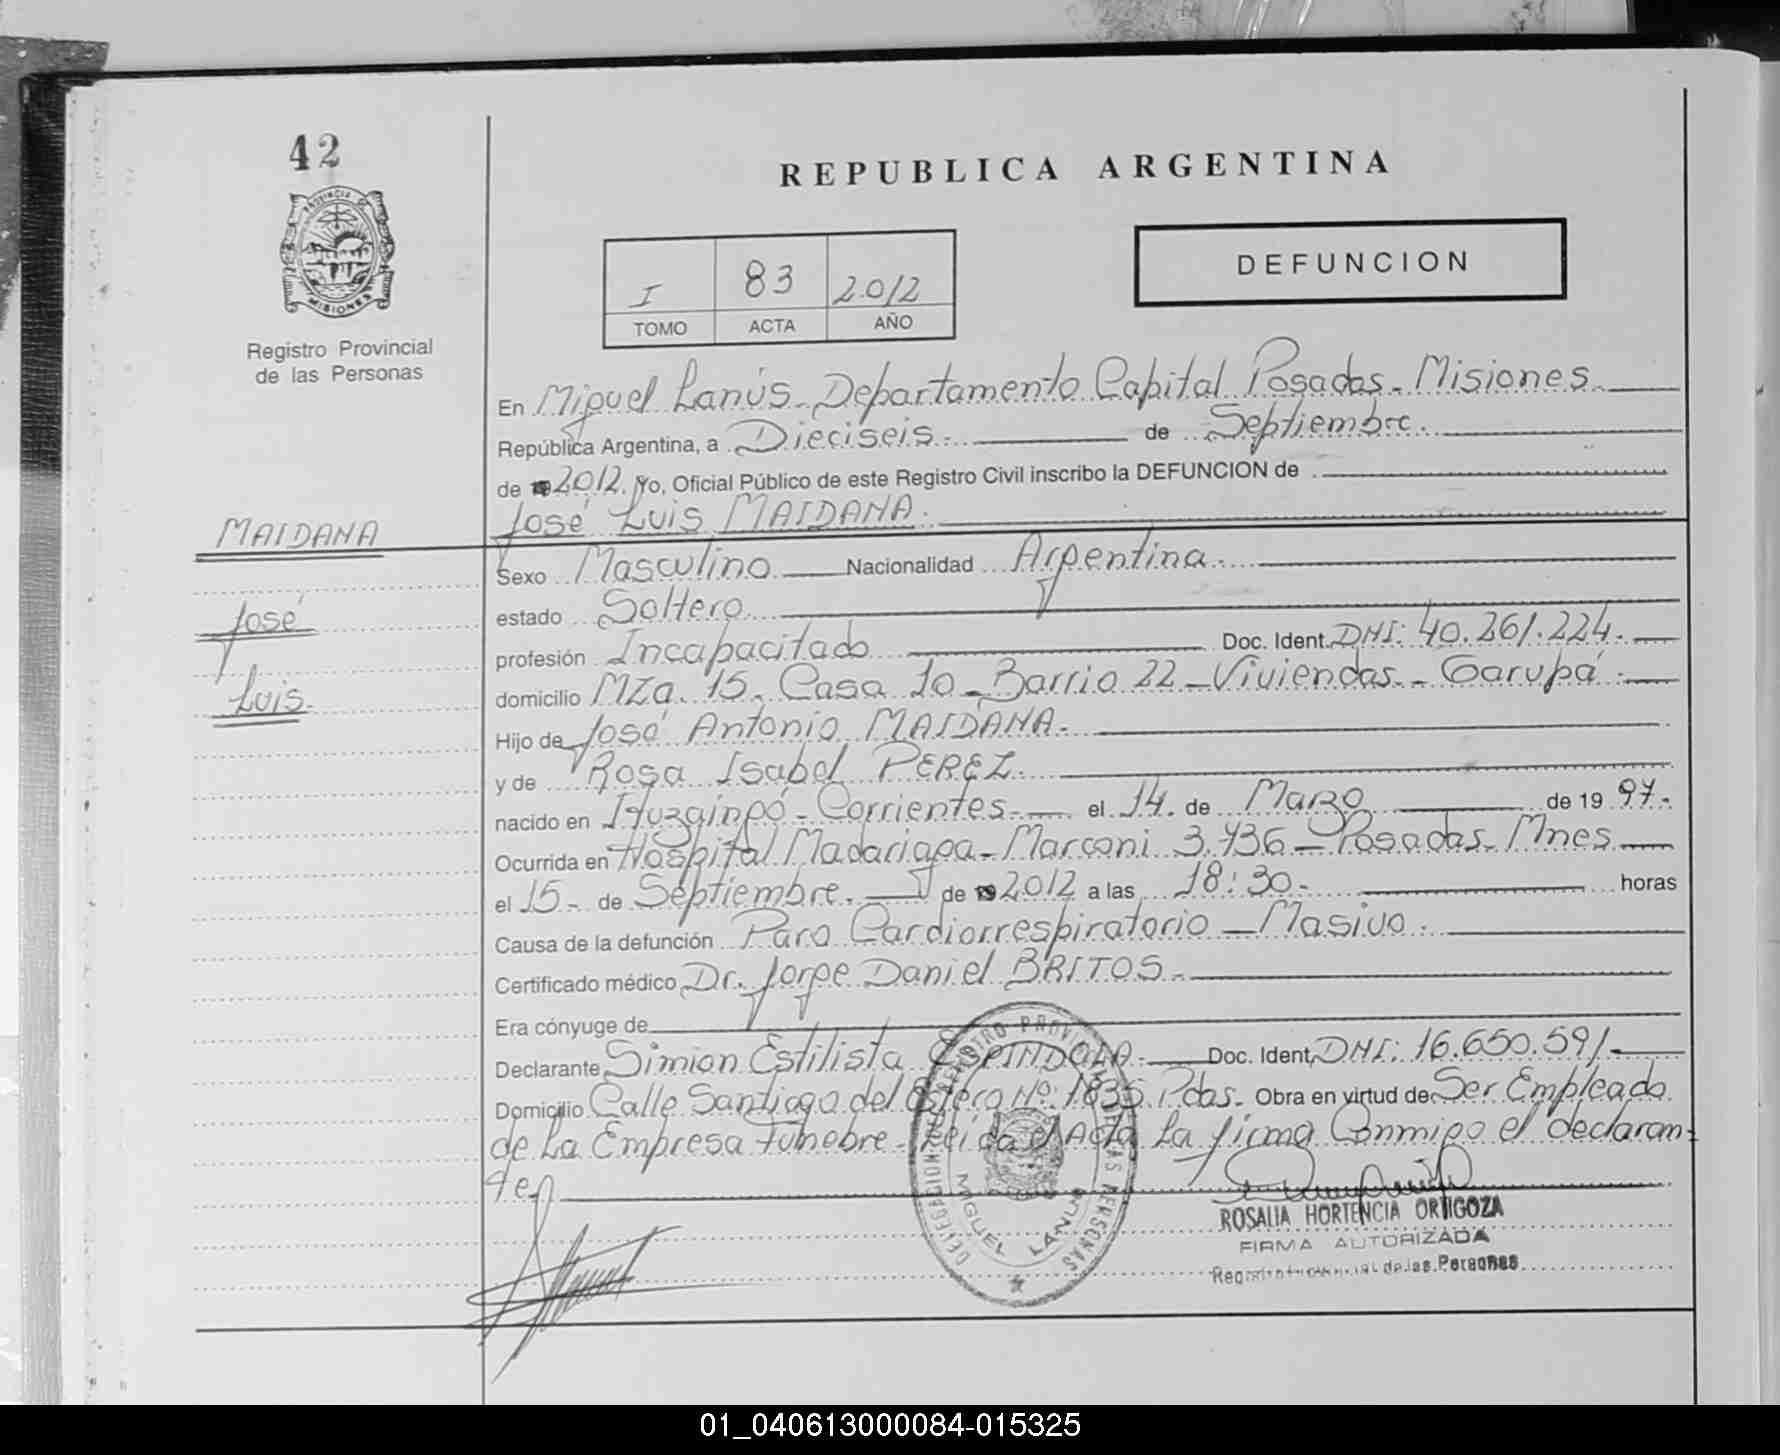 42
REPUBLICA ARGENTINA
PROVINCIA DE
MISIONES
DEFUNCION
I 83 2.012
TOMO ACTA AÑO
Registro Provincial
de las Personas
En Miguel Lanús - Departamento Capital Posadas - Misiones
República Argentina, a Dieciseis.- de Septiembre.
de 2012. yo, Oficial Público de este Registro Civil inscribo la DEFUNCION de
José Luis MAIDANA.
MAIDANA
José
Luis.
Sexo Masculino Nacionalidad Argentina.
estado Soltero.
profesión Incapacitado Doc. Ident. DNI: 40.261.224.
domicilio Mza. 15. Casa 10 - Barrio 22 - Viviendas - Garupá
Hijo de José Antonio MAIDANA.
y de Rosa Isabel PEREZ.
nacido en Ituzaingó - Corrientes. el 14. de Marzo de 19 97.
Ocurrida en Hospital Madariaga - Marconi 3.736 - Posadas - Mnes
el 15 - de Septiembre. de 2012 a las 18:30. horas
Causa de la defunción Paro Cardiorrespiratorio - Masivo.
Certificado médico Dr. Jorge Daniel BRITOS.
Era cónyuge de
Declarante Simion Estilista ESPINDOLA. Doc. Ident. DNI: 16.650.591.
Domicilio Calle Santiago del Estero Nº: 1835 Pdas. Obra en virtud de Ser Empleado
de La Empresa Funebre - Leida el Acta La firma Conmigo el declaran-
te.
DELEGACION DEL REGISTRO PROVINCIAL DE LAS PERSONAS
MIGUEL LANUS
ROSALIA HORTENCIA ORTIGOZA
FIRMA AUTORIZADA
Registro Provincial de las Personas
01_040613000084-015325